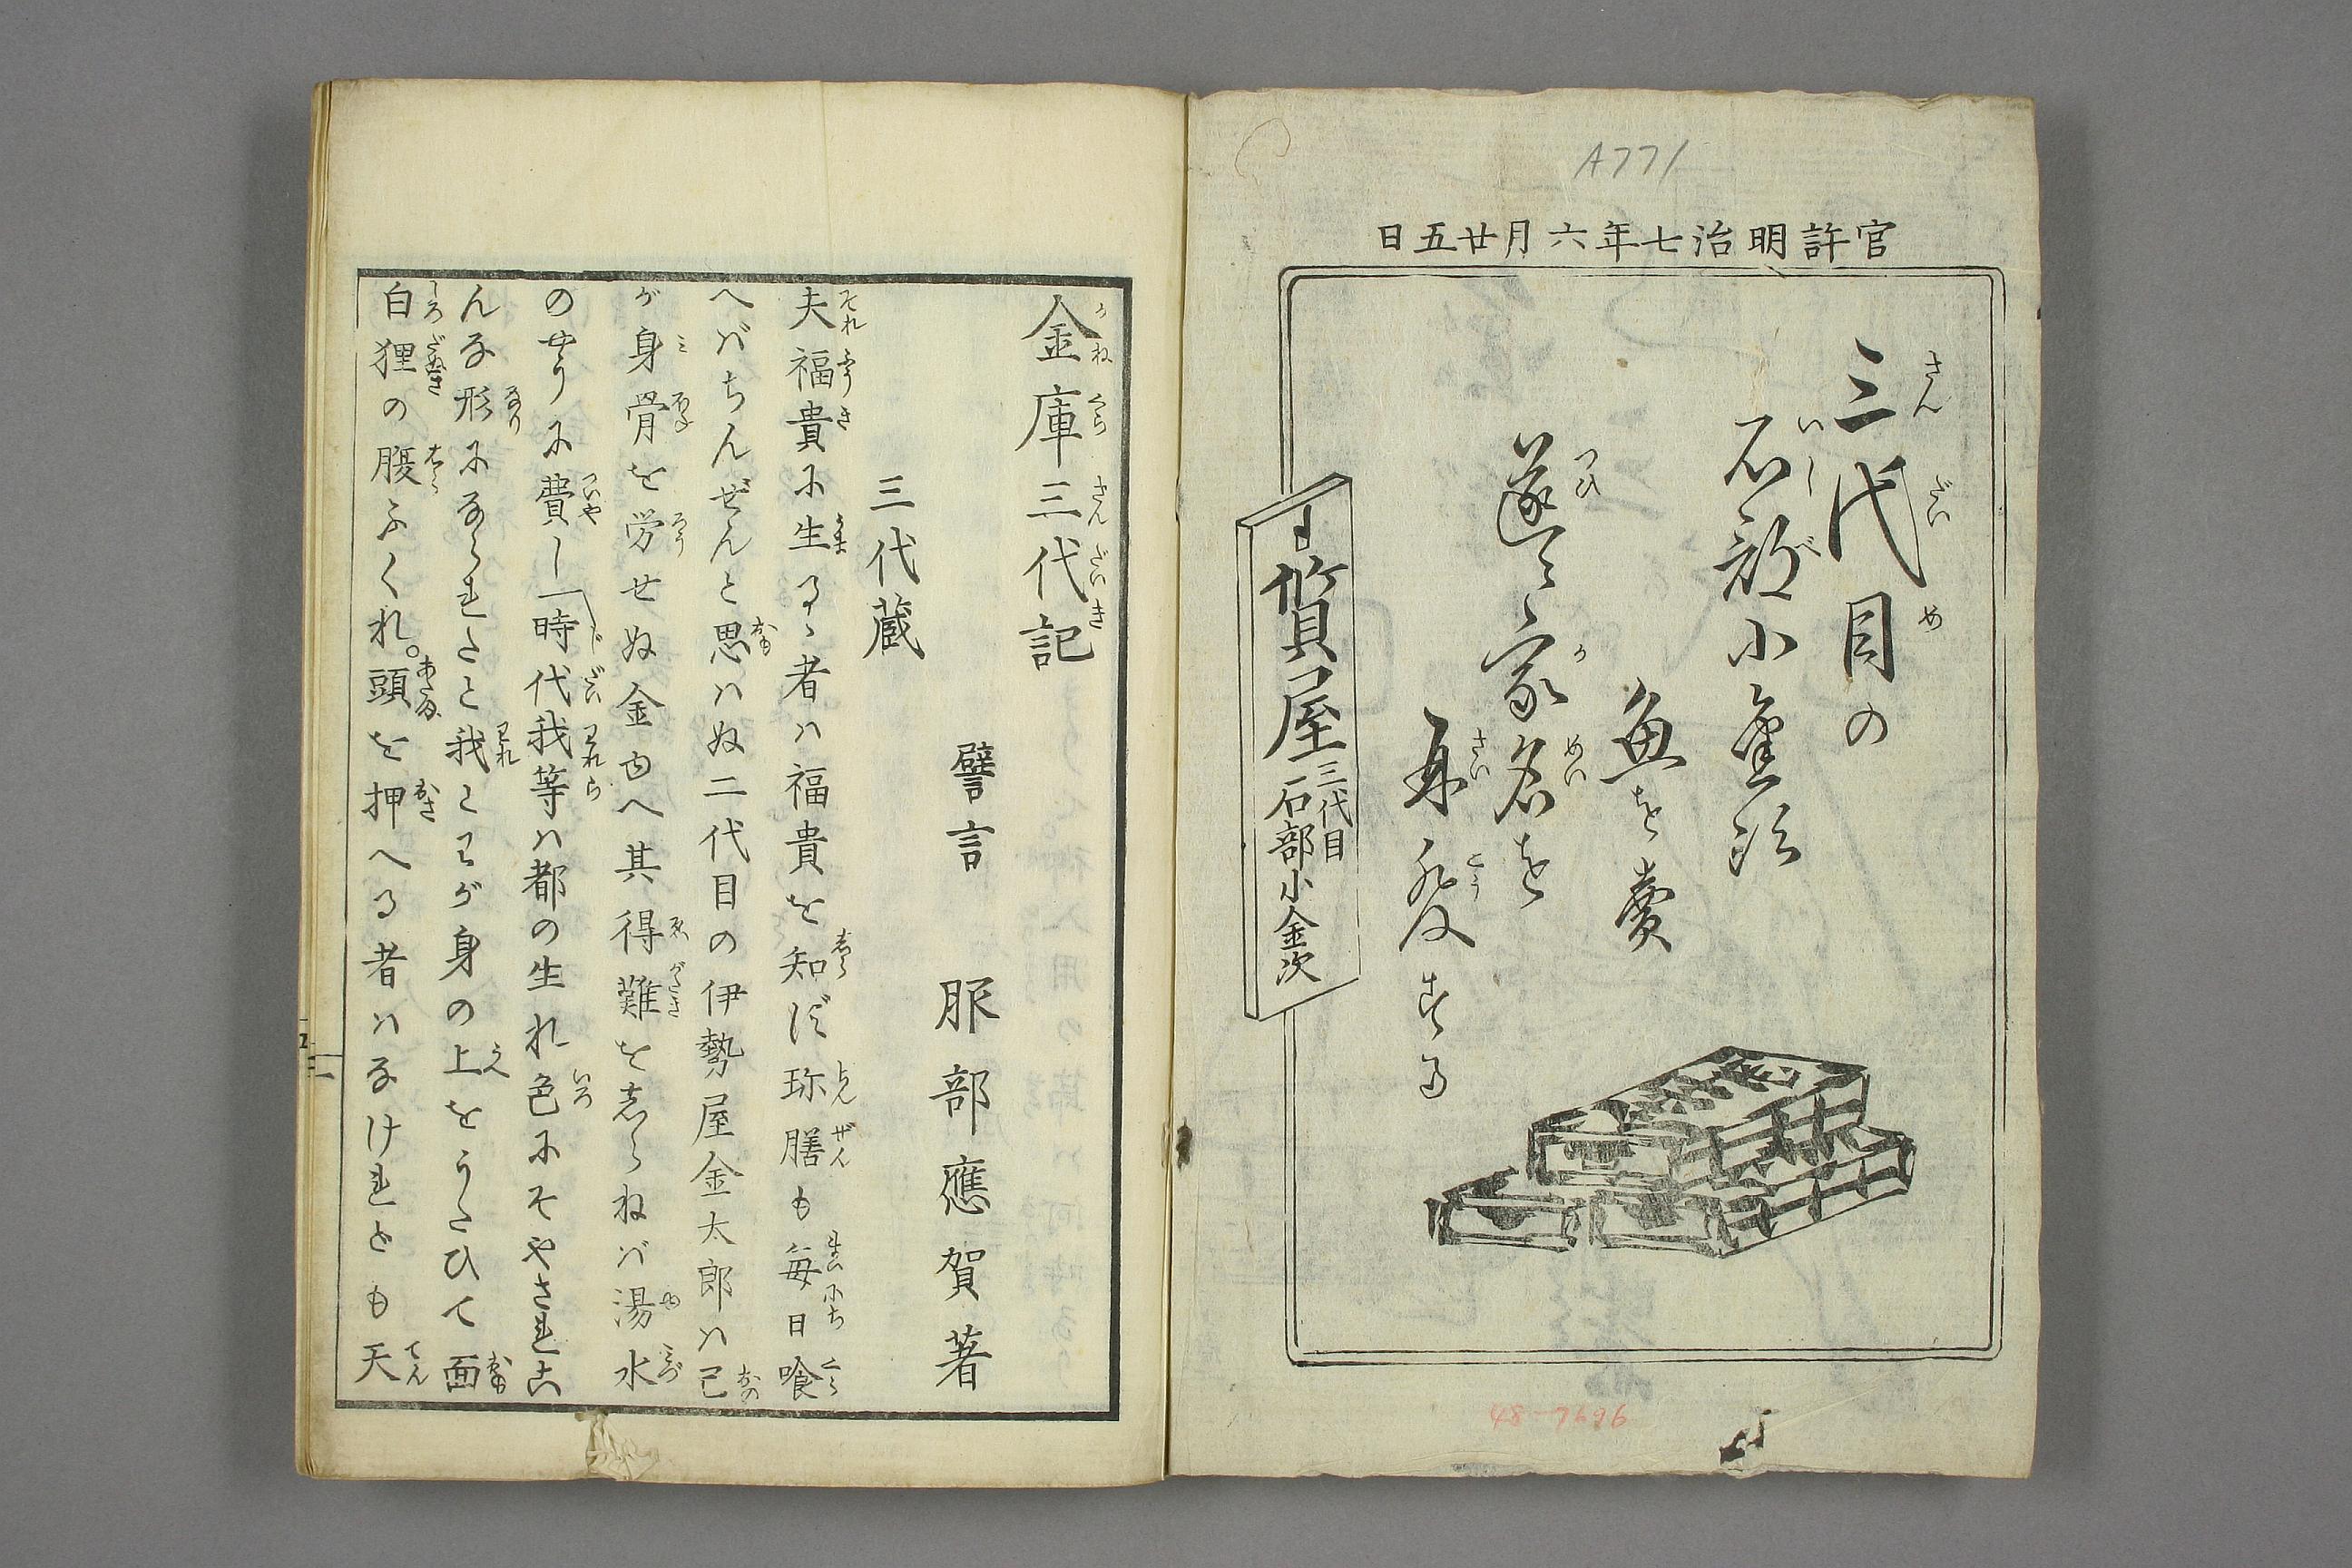 A771
官許明治七年六月廿五日
三代目の
石部小金次
魚を賣
遂に家名を
再発する
質屋
三代目
石部小金次
48-7696
金庫三代記
譬言 服部應賀著
三代蔵
夫福貴に生るゝ者ハ福貴を知らず珎膳も毎日喰
へバちんぜんと思ハぬ二代目の伊勢屋金太郎ハ己
が身骨を労せぬ金ゆへ其得難を志らねバ湯水
のやうに費し時代我等ハ都の生れ色にそやされこ
んな形になられたと我とわが身の上をうたひて面
白狸の腹ふくれ。頭を押へる者ハなけれども天